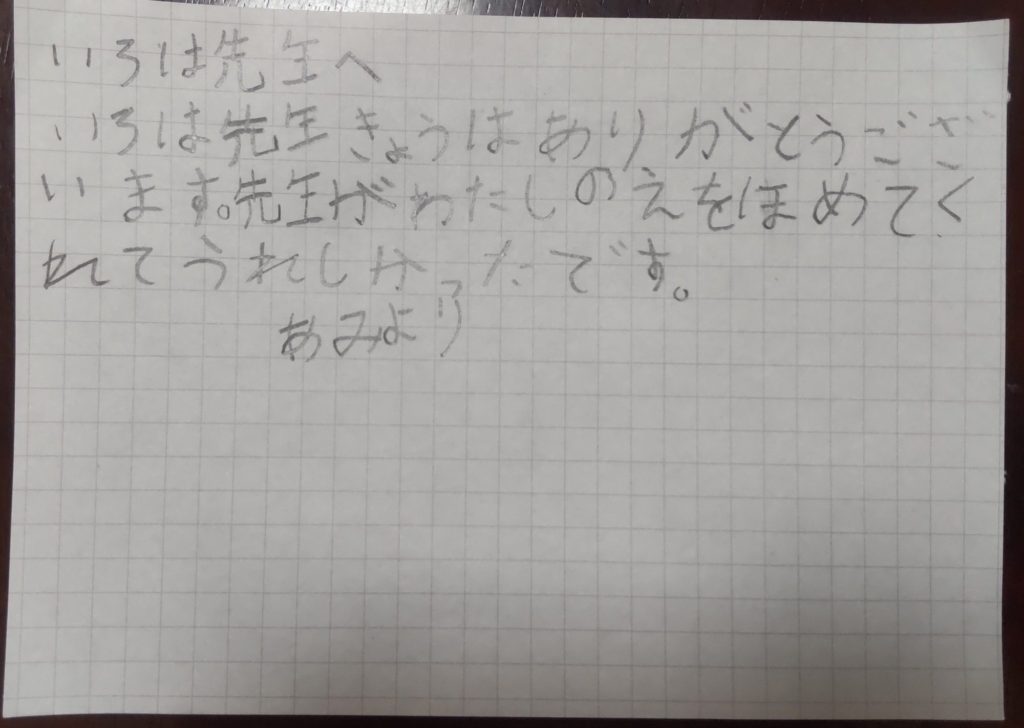 いろは先生へ
いろは先生きょうはありがとうござ
います。先生がわたしのえをほめてく
れてうれしかったです。
あみより